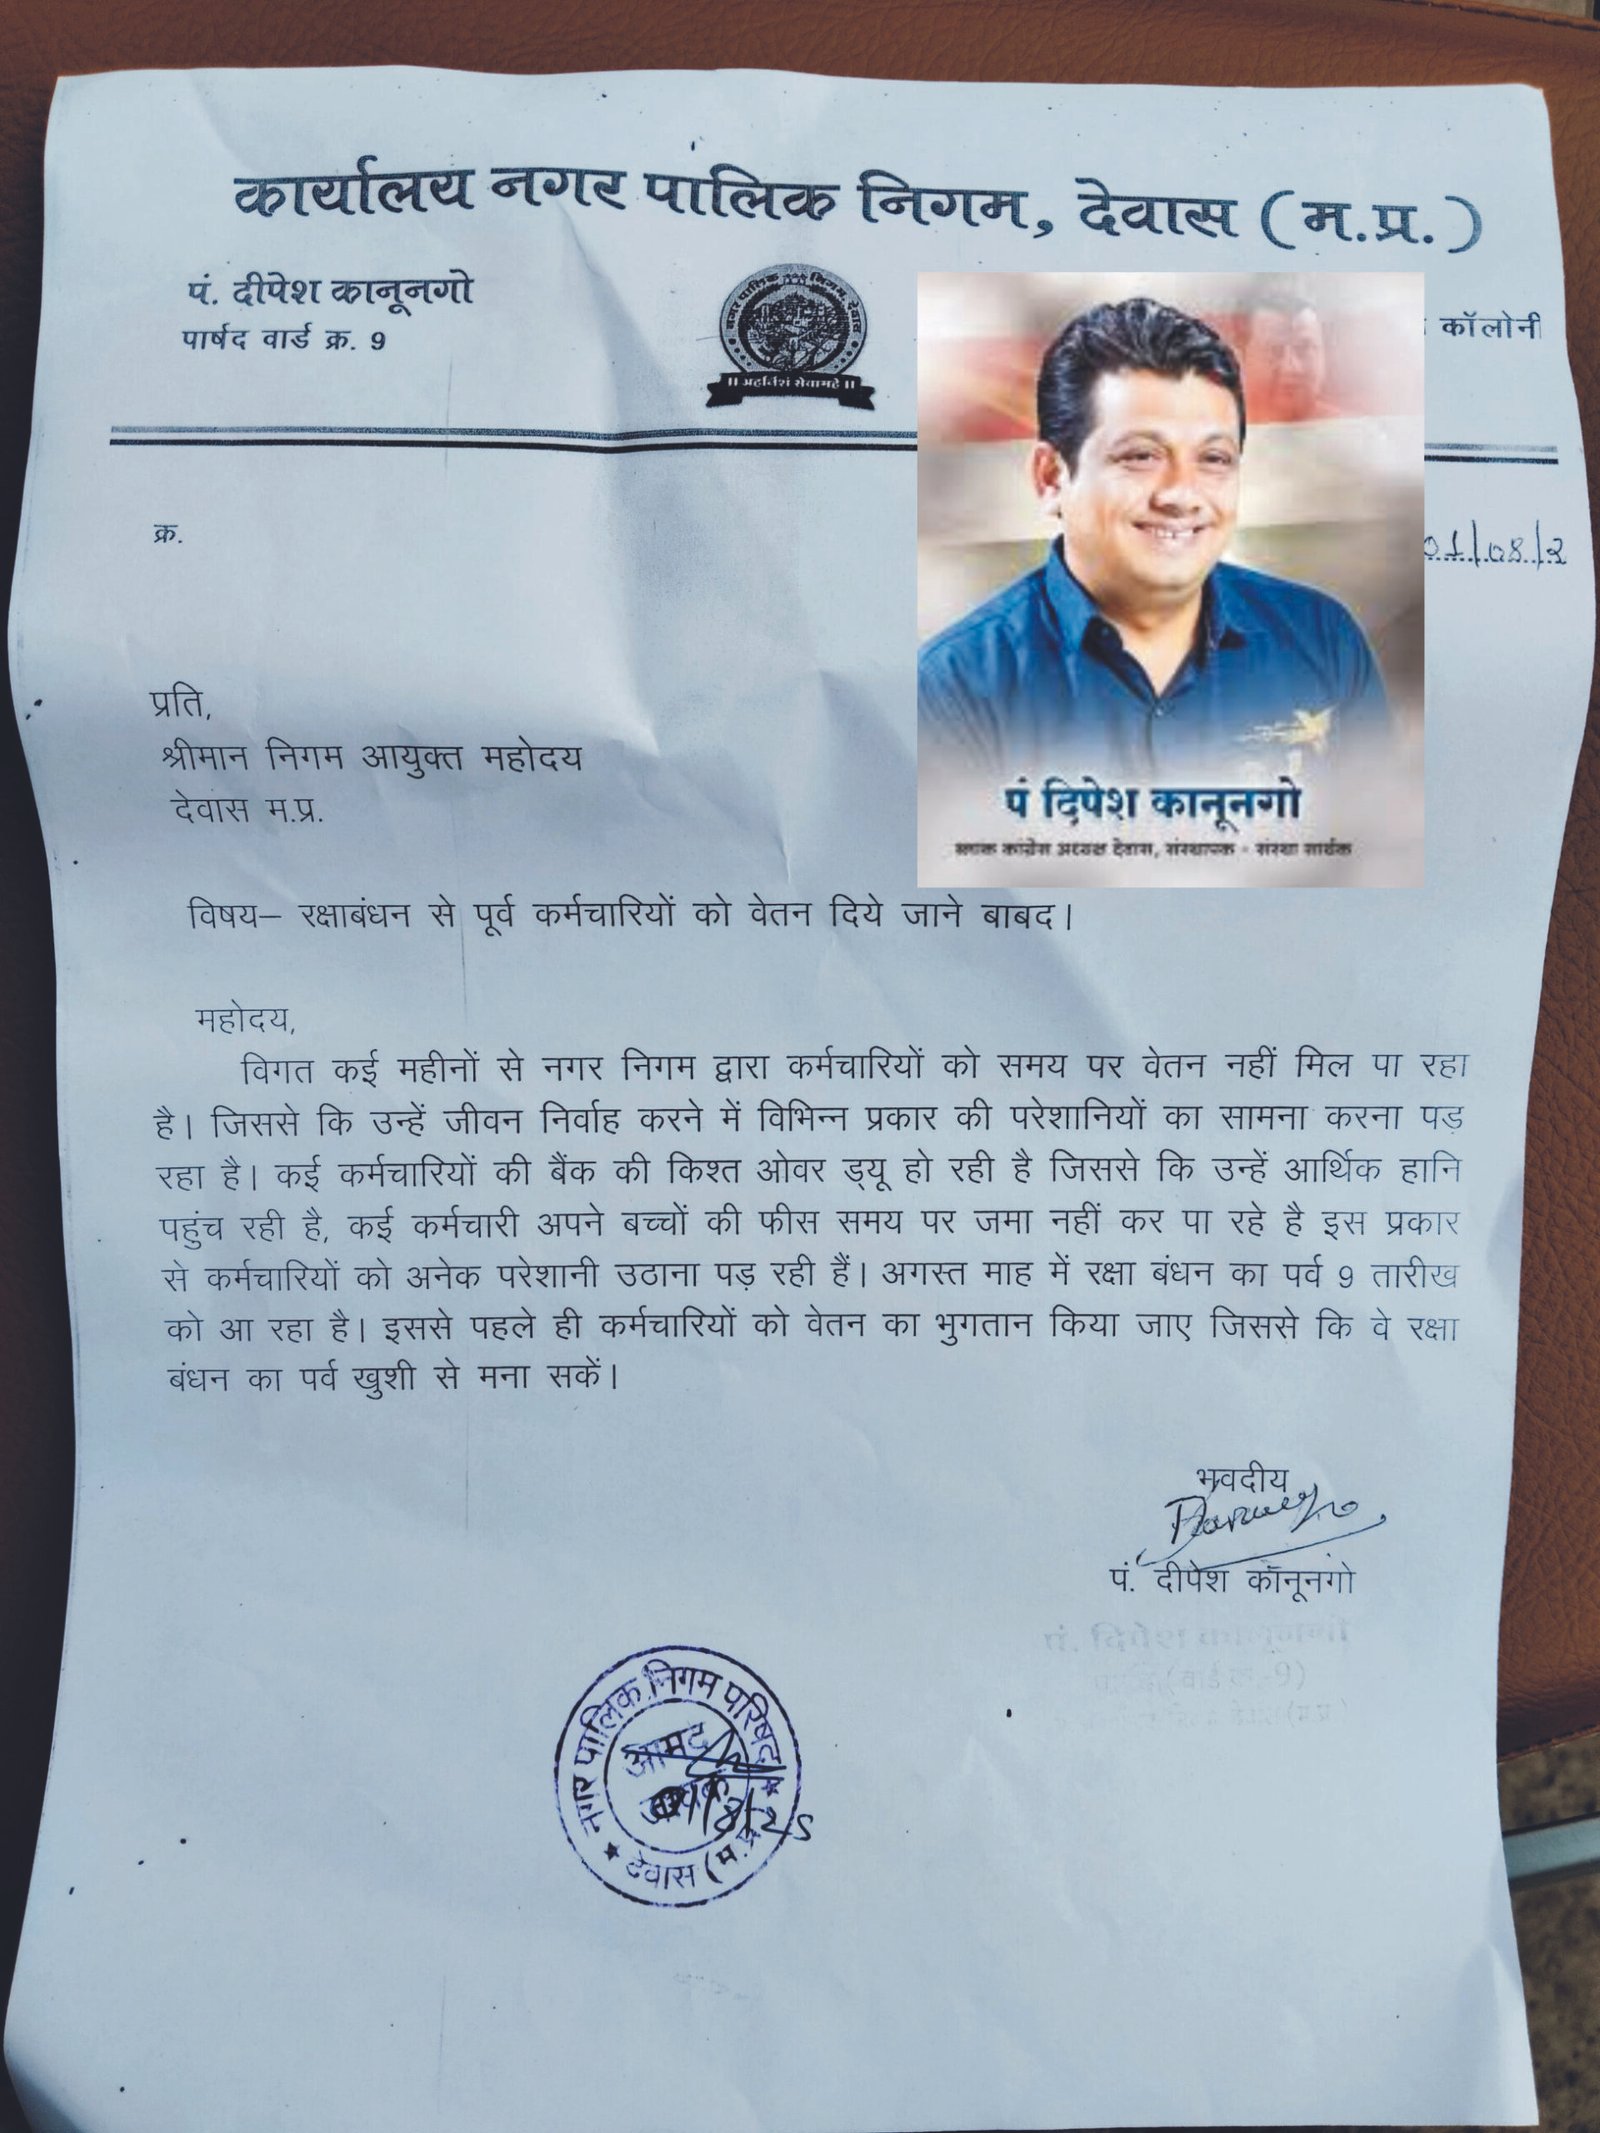 कार्यालय नगर पालिक निगम, देवास (म.प्र.)
पं. दीपेश कानूनगो
पार्षद वार्ड क्र. 9
नगर पालिक निगम, देवास
।। अहर्निशं सेवामहे ।।
कॉलोनी
क्र.
01/08/2
पं दिपेश कानूनगो
ब्लाक कांग्रेस अध्यक्ष देवास, संस्थापक - संस्था सार्थक
प्रति,
श्रीमान निगम आयुक्त महोदय
देवास म.प्र.
विषय– रक्षाबंधन से पूर्व कर्मचारियों को वेतन दिये जाने बाबद।
महोदय,
विगत कई महीनों से नगर निगम द्वारा कर्मचारियों को समय पर वेतन नहीं मिल पा रहा
है। जिससे कि उन्हें जीवन निर्वाह करने में विभिन्न प्रकार की परेशानियों का सामना करना पड़
रहा है। कई कर्मचारियों की बैंक की किश्त ओवर ड्यू हो रही है जिससे कि उन्हें आर्थिक हानि
पहुंच रही है, कई कर्मचारी अपने बच्चों की फीस समय पर जमा नहीं कर पा रहे है इस प्रकार
से कर्मचारियों को अनेक परेशानी उठाना पड़ रही हैं। अगस्त माह में रक्षा बंधन का पर्व 9 तारीख
को आ रहा है। इससे पहले ही कर्मचारियों को वेतन का भुगतान किया जाए जिससे कि वे रक्षा
बंधन का पर्व खुशी से मना सकें।
भवदीय
पं. दीपेश कॉनूनगो
पं. दिपेश कानूनगो
नगर पालिक निगम परिषद
आमद
जावक
01/8/25
देवास (म.प्र.